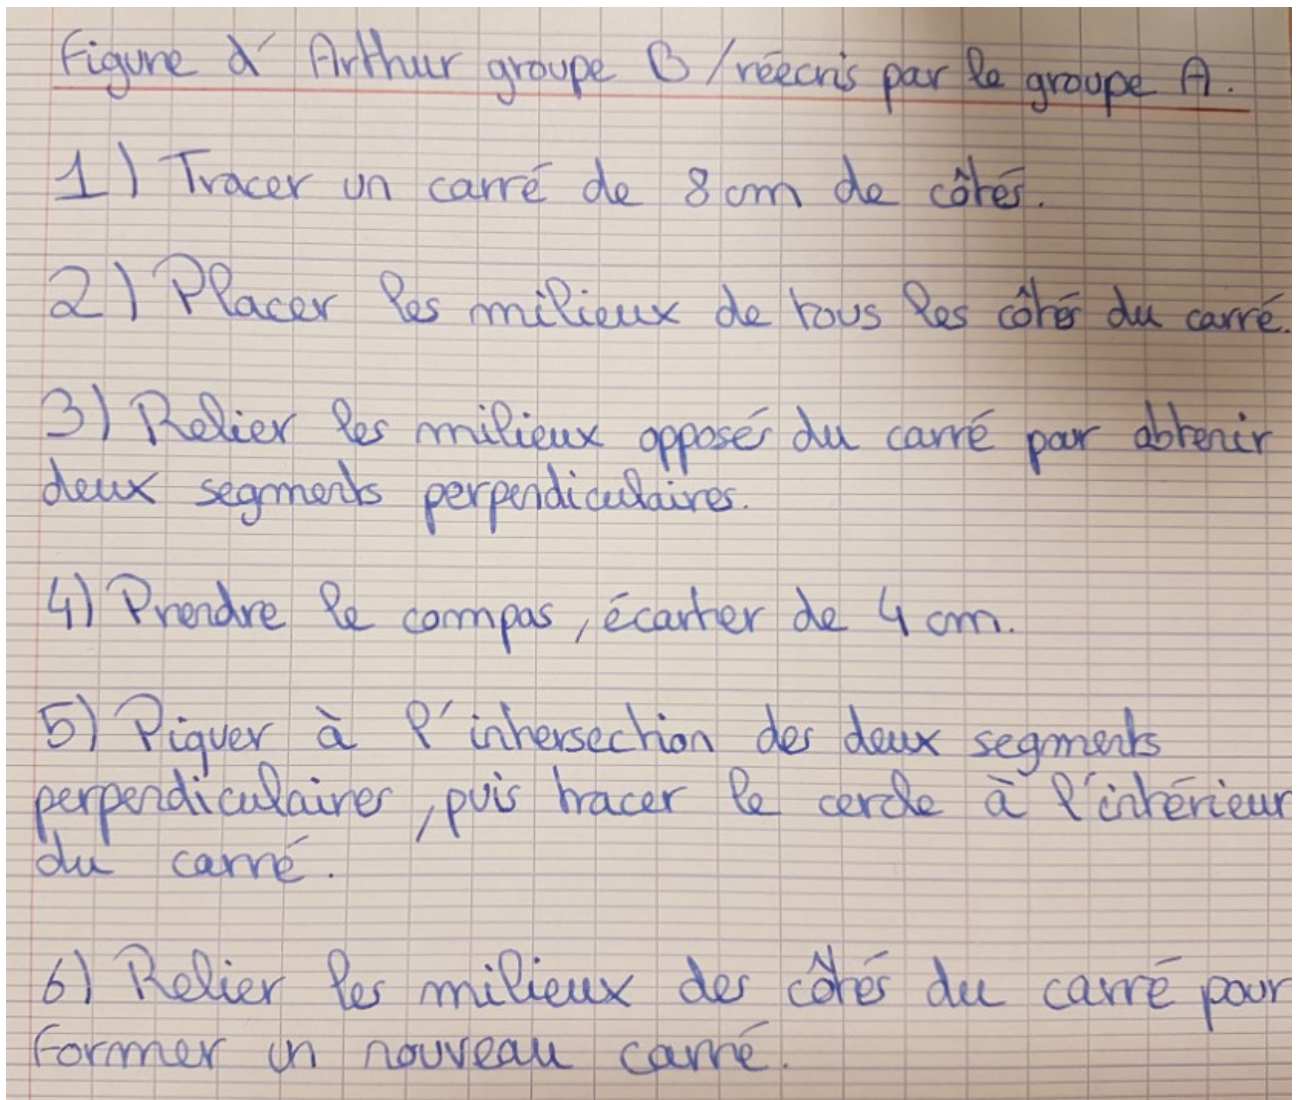 Figure d'Arthur groupe B / réécris par le groupe A.
1) Tracer un carré de 8 cm de côtés.
2) Placer les milieux de tous les côtés du carré.
3) Relier les milieux opposés du carré pour obtenir
deux segments perpendiculaires.
4) Prendre le compas, écarter de 4 cm.
5) Piquer à l'intersection des deux segments
perpendiculaires, puis tracer le cercle à l'intérieur
du carré.
6) Relier les milieux des côtés du carré pour
former un nouveau carré.